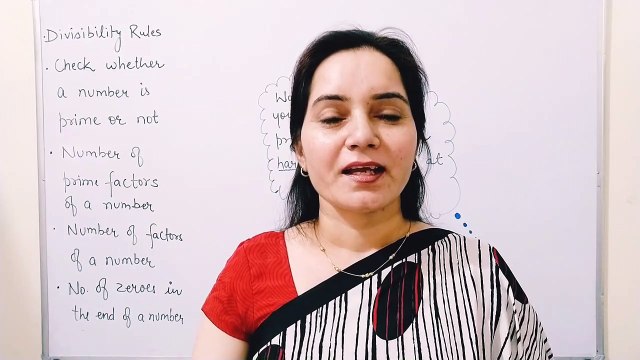 ·Divisibility Rules
· Check whether
a number is
prime or not
· Number of
prime factors
of a number
· Number of factors
of a number
· No. of zeroes in
the end of a number
at